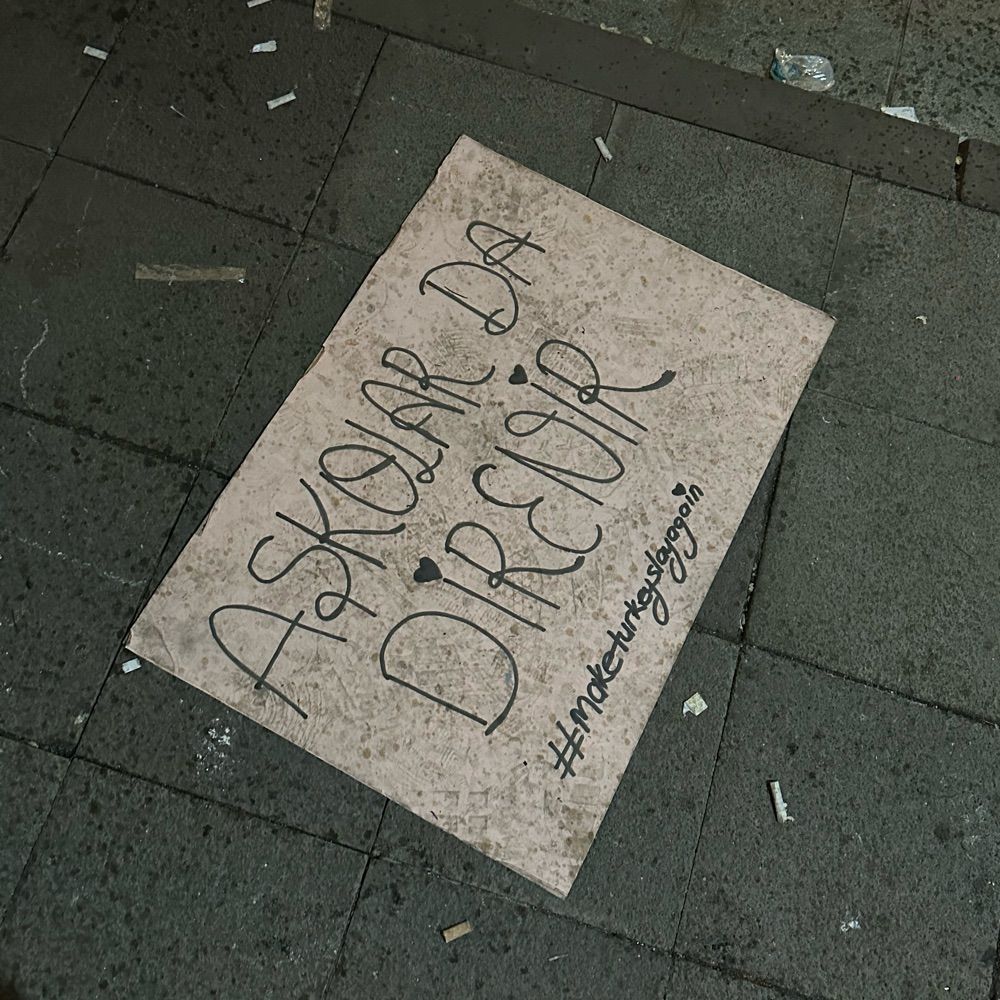 ASKOLAR DA
DİRENİR
#maketurkeyslayagain